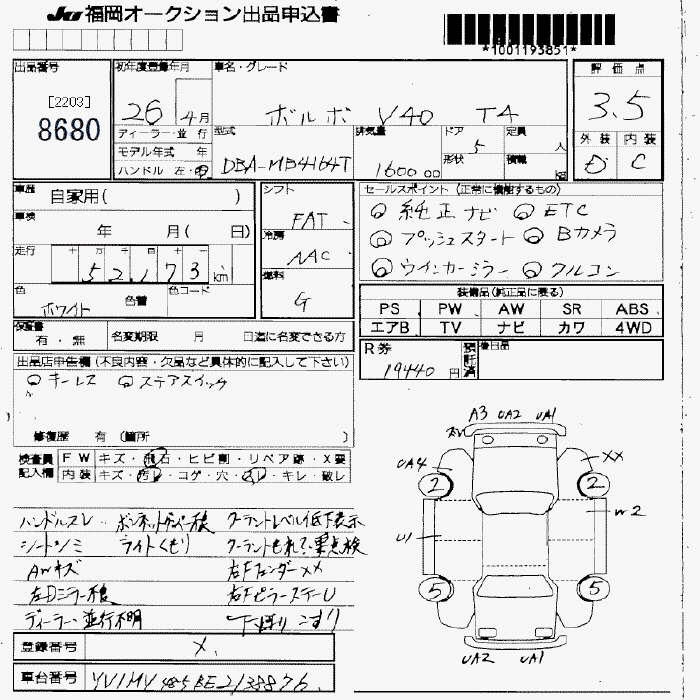 JU 福岡オークション出品申込書
*1001193851*
出品番号
[2203]
8680
初年度登録年月
26年4月
ディーラー・並行
モデル年式 年
ハンドル 左・右
車名・グレード
ボルボ V40 T4
型式
DBA-MB4164T
排気量
1600 cc
ドア
5
形状
定員
人
積載
kg
評価点
3.5
外装 内装
D C
車歴
自家用( )
車検
年 月( 日)
走行
十万千百十一
52,173 km
色
ホワイト
色替
色コード
シフト
FAT
冷房
AAC
燃料
G
セールスポイント (正常に機能するもの)
◎ 純正ナビ ◎ ETC
◎ プッシュスタート ◎ Bカメラ
◎ ウインカーミラー ◎ クルコン
装備品(純正品に限る)
PS PW AW SR ABS
エアB TV ナビ カワ 4WD
保証書
有・無
名変期限 月 日迄に名変できる方
R券
19440 円
預託済
後日品
出品店申告欄 (不良内容・欠品など具体的に記入して下さい)
◎ キーレス ◎ ステアスイッチ
修復歴 有 (箇所 )
検査員
記入欄
FW キズ・飛石・ヒビ割・リペア跡・X要
内装 キズ・汚レ・コゲ・穴・スレ・キレ・破レ
ハンドルスレ ボンネットダンパー穫 クーラントレベル低下表示
シートシミ ライトくもり クーラントもれ?要点検
AWキズ 右FフェンダーXX
左Dミラー穫 右FピラーステーU
ディーラー・並行不明 下回り こすり
登録番号
X
車台番号
YV1MV485BE2138876
A3 UA2 UA1
UA4 XX
2 2
U1 W2
5 5
UA2 UA1